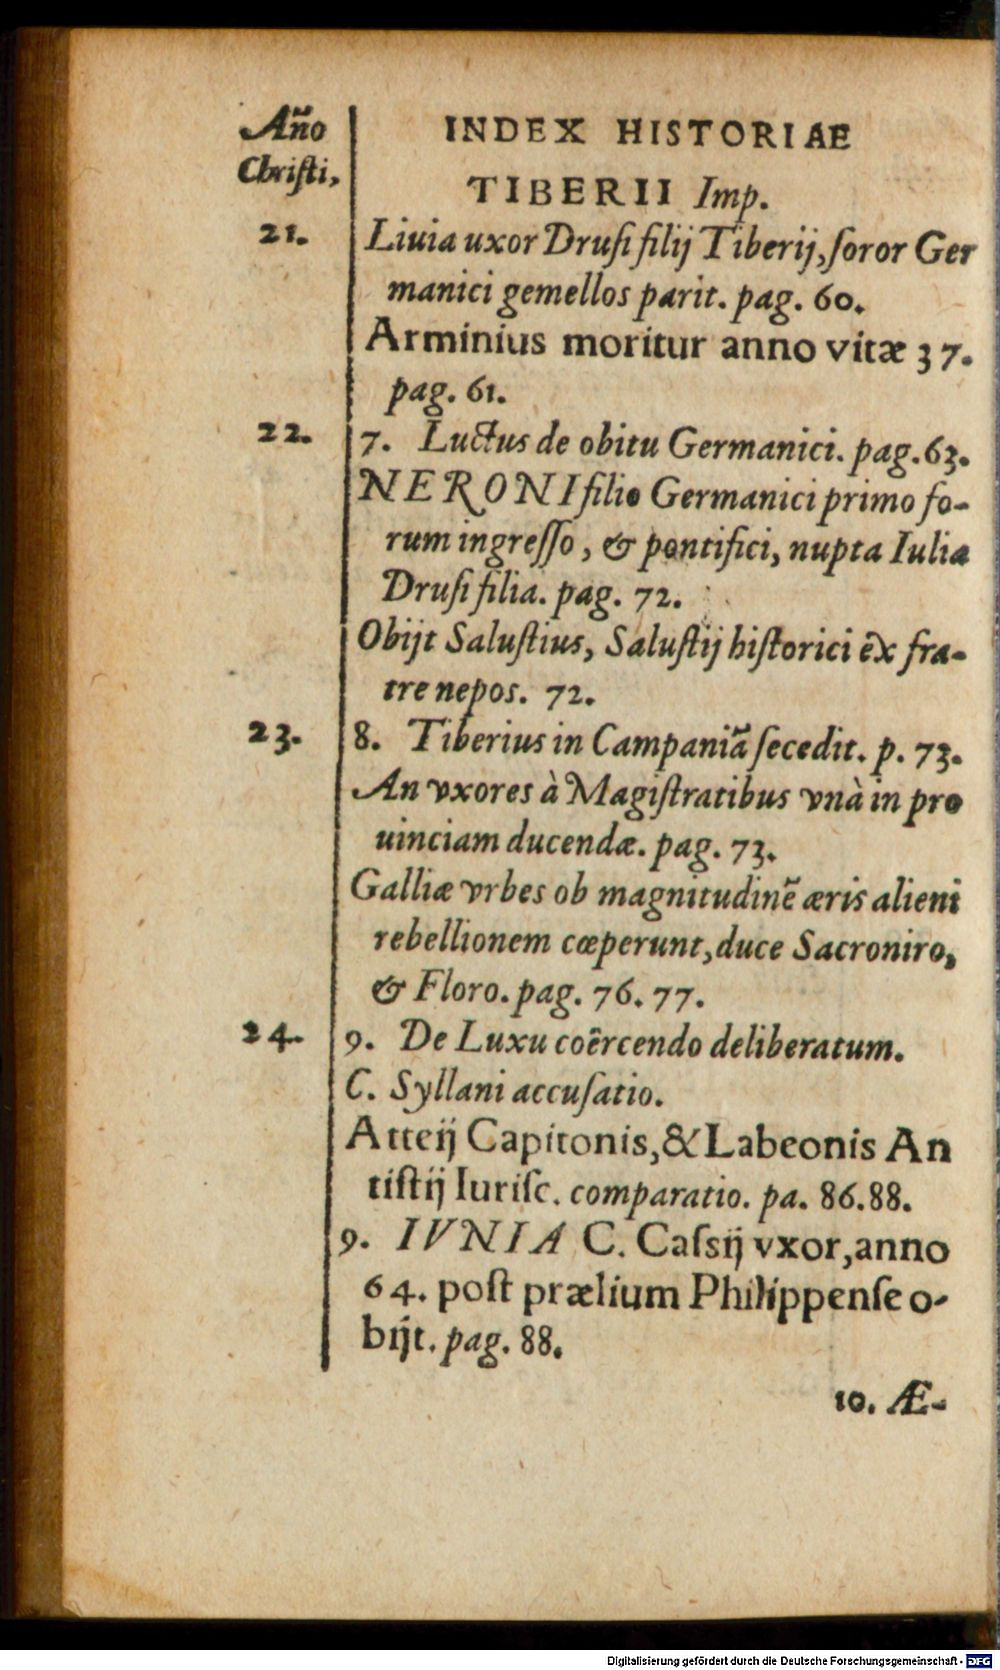 Año INDEX HISTORIAE
Christi, TIBERII Imp.
21. Liuia uxor Drusi filij Tiberij, soror Ger
manici gemellos parit. pag. 60.
Arminius moritur anno vitæ 37.
pag. 61.
22. 7. Luctus de obitu Germanici. pag. 63.
NERONI filio Germanici primo fo-
rum ingresso, & pontifici, nupta Iulia
Drusi filia. pag. 72.
Obijt Salustius, Salustij historici ēx fra-
tre nepos. 72.
23. 8. Tiberius in Campaniã secedit. p. 73.
An vxores à Magistratibus vnà in pro
uinciam ducendæ. pag. 73.
Galliæ vrbes ob magnitudinē æris alieni
rebellionem cœperunt, duce Sacroniro,
& Floro. pag. 76. 77.
24. 9. De Luxu coêrcendo deliberatum.
C. Syllani accusatio.
Atteij Capitonis, & Labeonis An
tistij Iurisc. comparatio. pa. 86.88.
9. IVNIA C. Cassij vxor, anno
64. post prælium Philippense o-
bijt. pag. 88.
10. Æ-
Digitalisierung gefördert durch die Deutsche Forschungsgemeinschaft - DFG